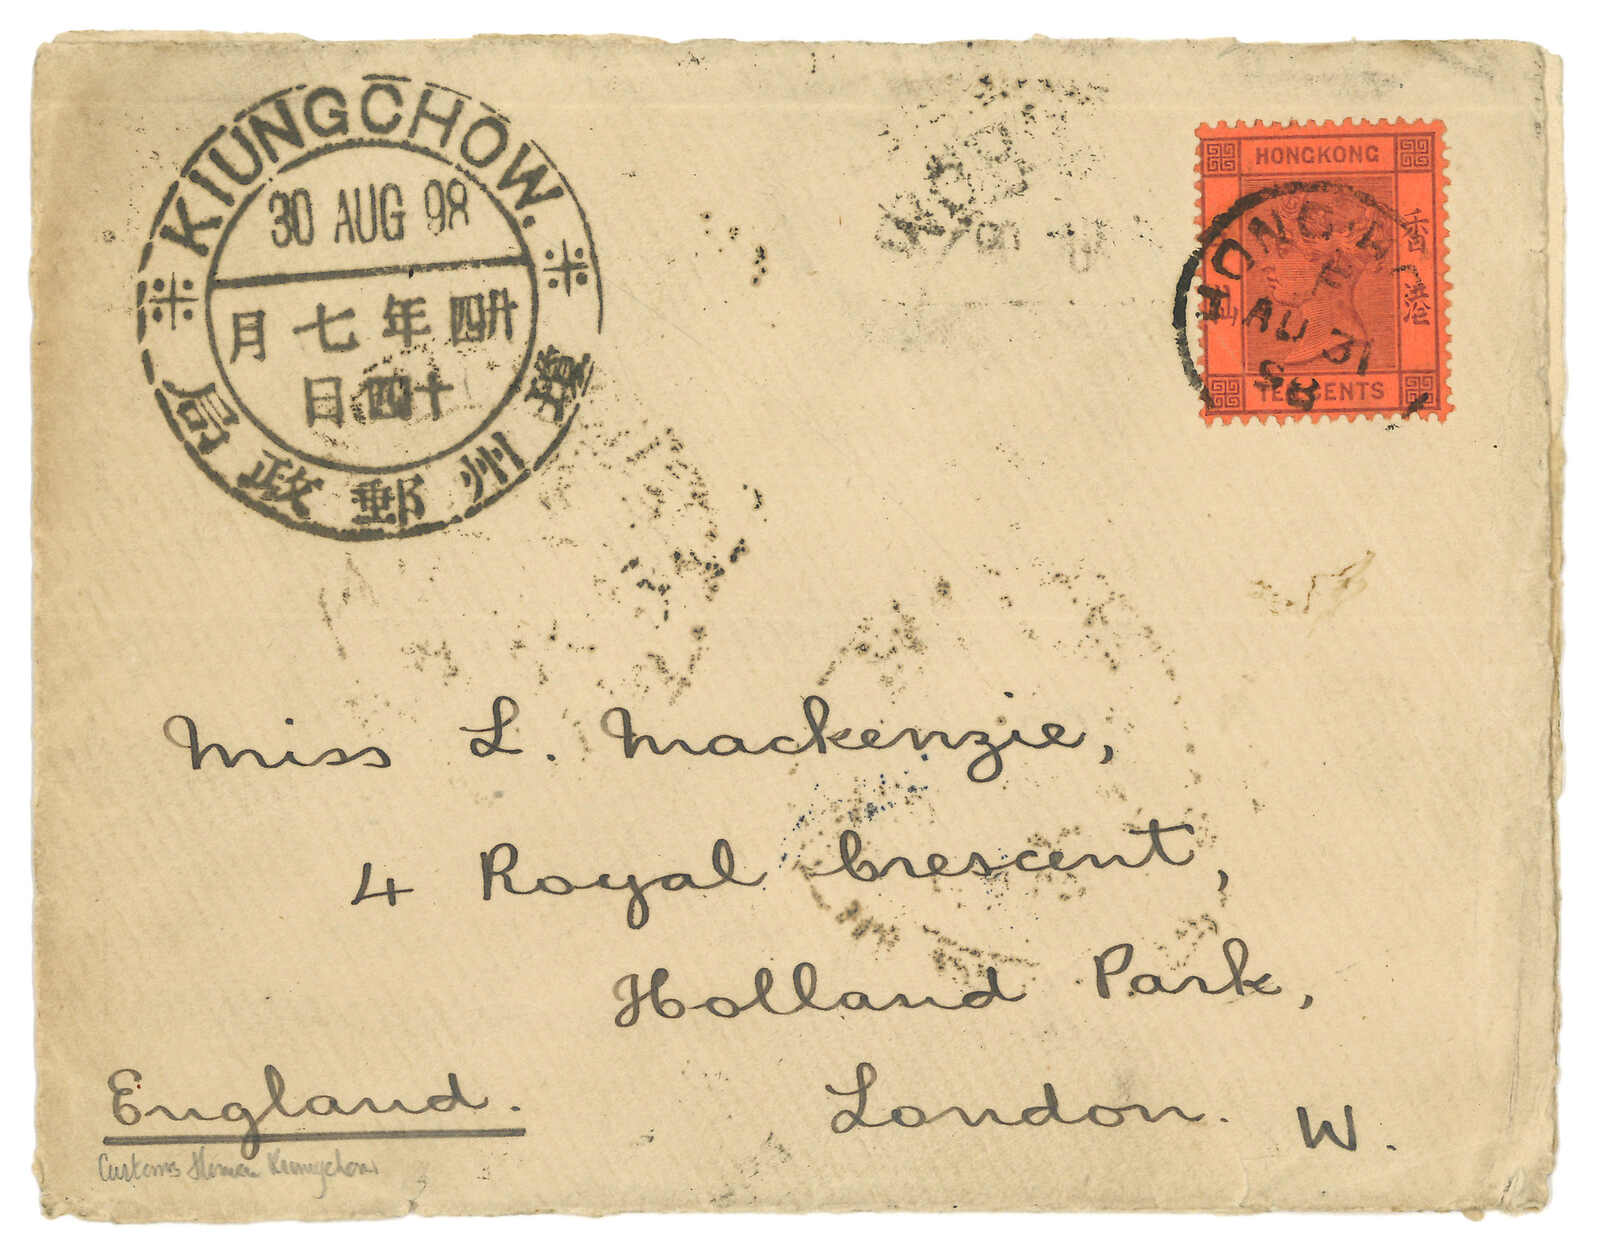 KIUNGCHOW.
30 AUG 98
月七年四廿
日四十
局政郵州瓊
HONGKONG
香港
仙
TEN CENTS
HONG K
AU 31
98
Miss L. Mackenzie,
4 Royal Crescent,
Holland Park,
London. W.
England.
Customs Kiungchow